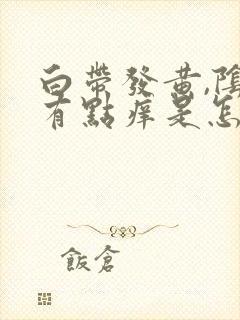 白帶發黃,陰
有點痒是怎
飯倉